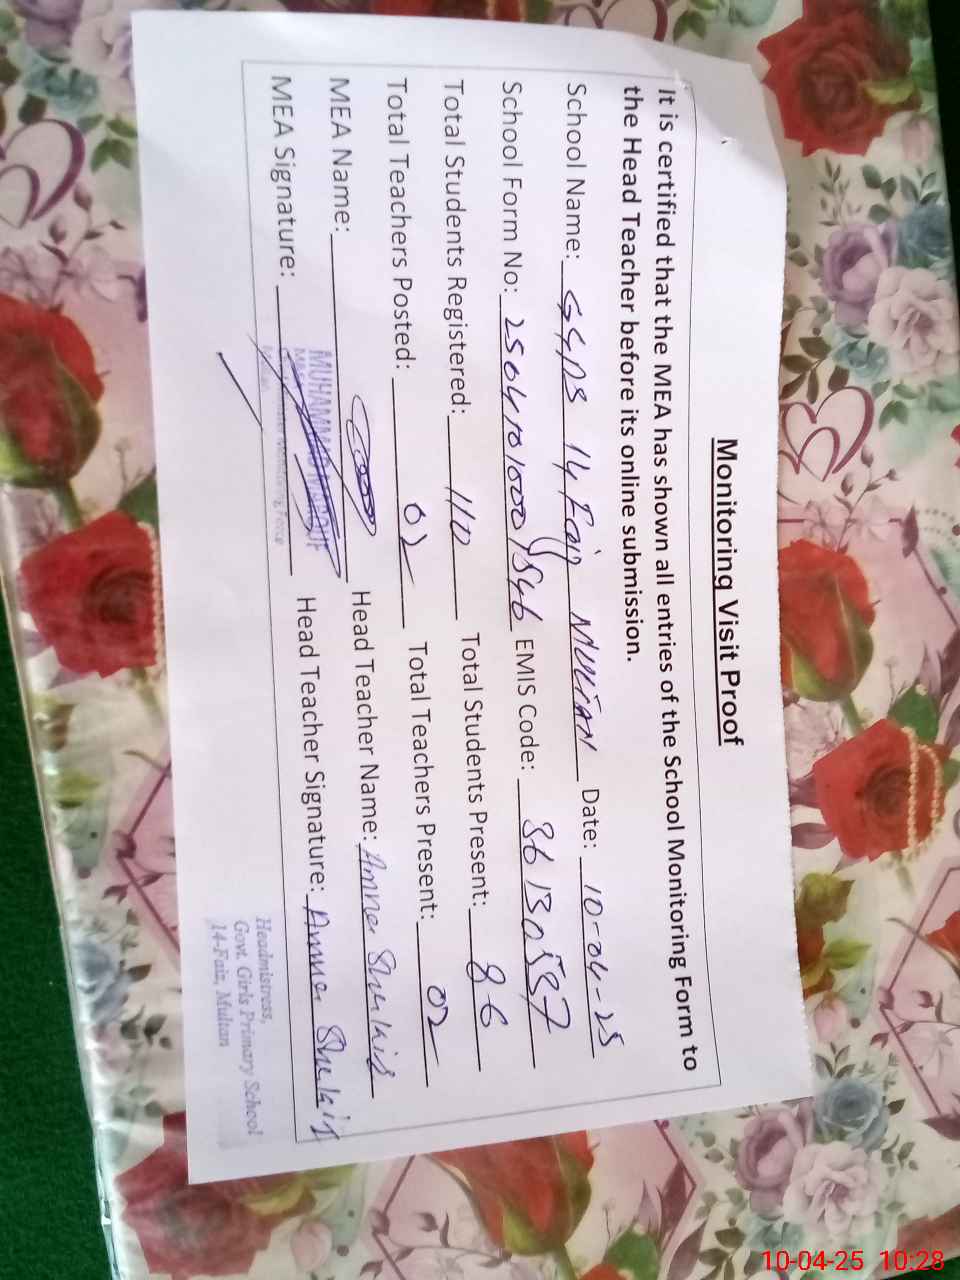 Monitoring Visit Proof
It is certified that the MEA has shown all entries of the School Monitoring Form to
the Head Teacher before its online submission.
School Name: GGPS 14 Faiz Multan Date: 10-04-25
School Form No: EMIS Code:
Total Students Registered: 110 Total Students Present: 86
Total Teachers Posted: 02 Total Teachers Present: 02
MEA Name: Head Teacher Name: Amna
MUHAMMAD
MEA Signature: Head Teacher Signature: Amna
Monitoring Force
Headmistress,
Govt. Girls Primary School
14-Faiz, Multan
10-04-25 10:28